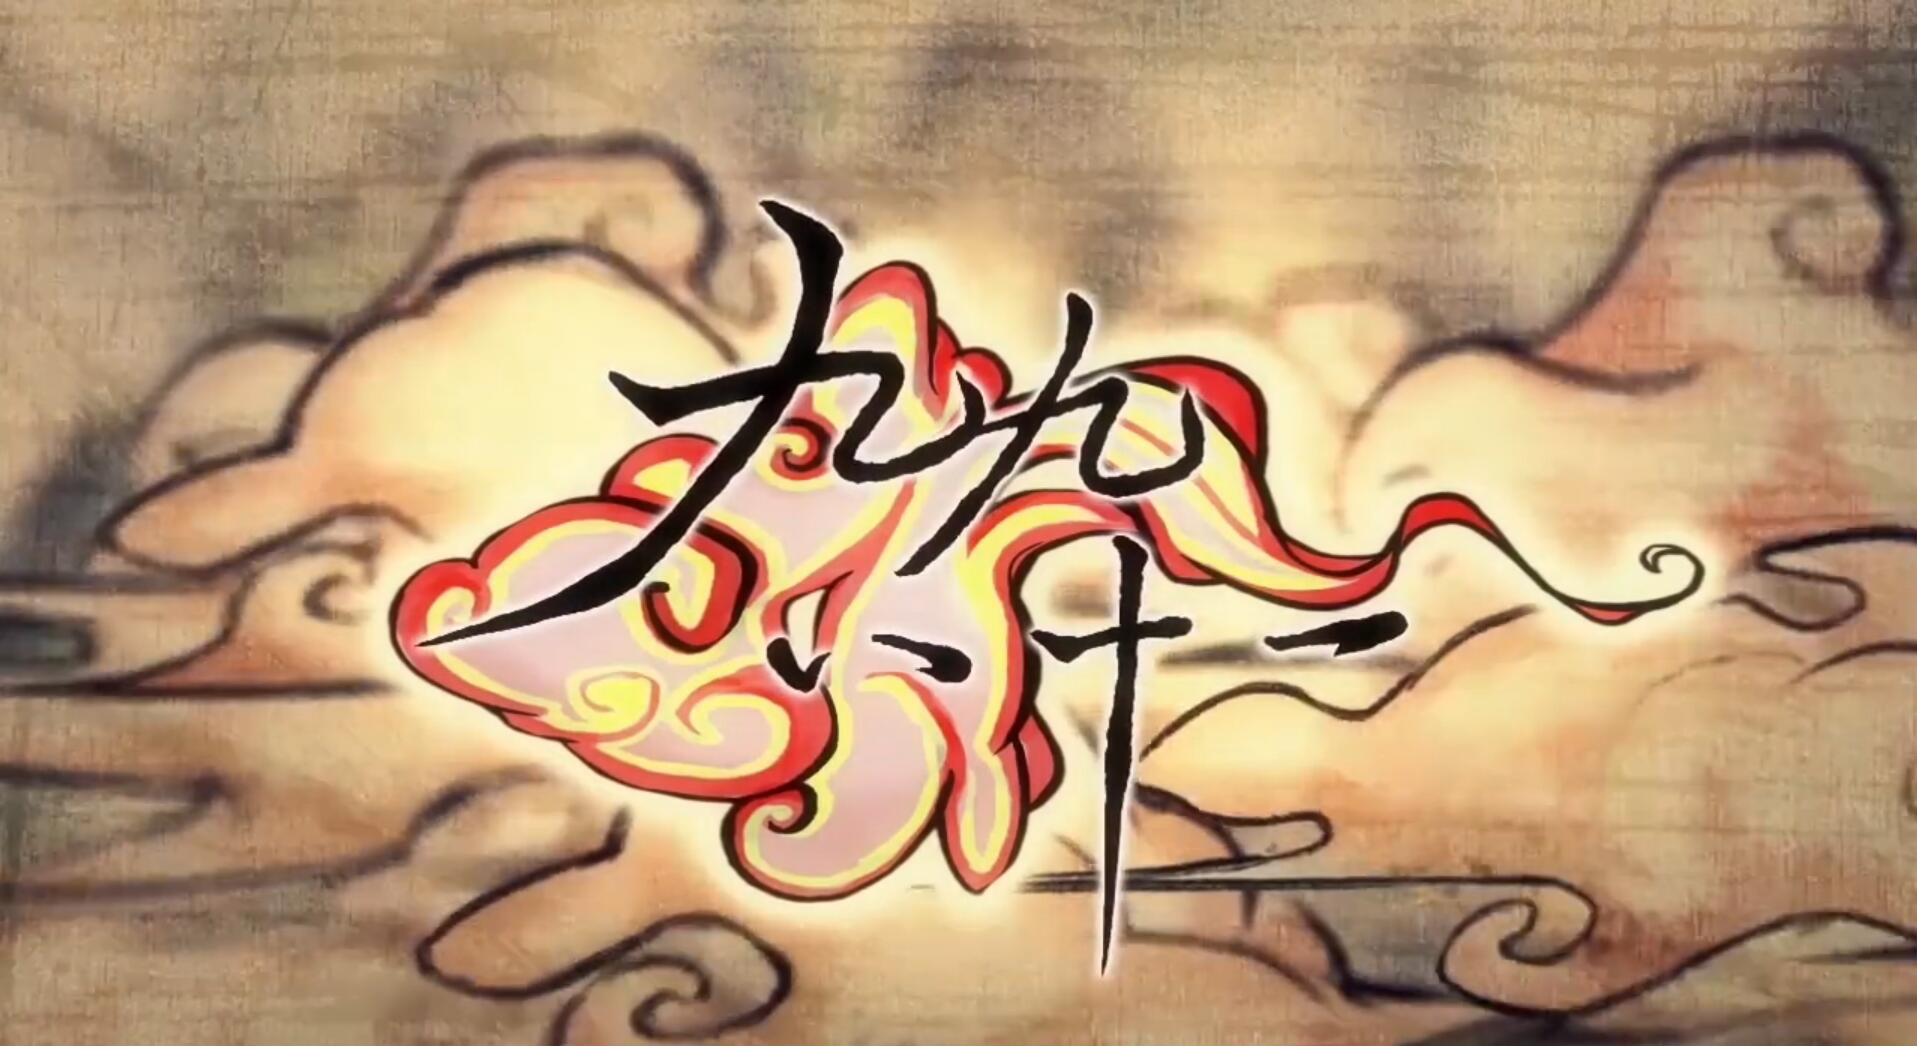 九九
八十一